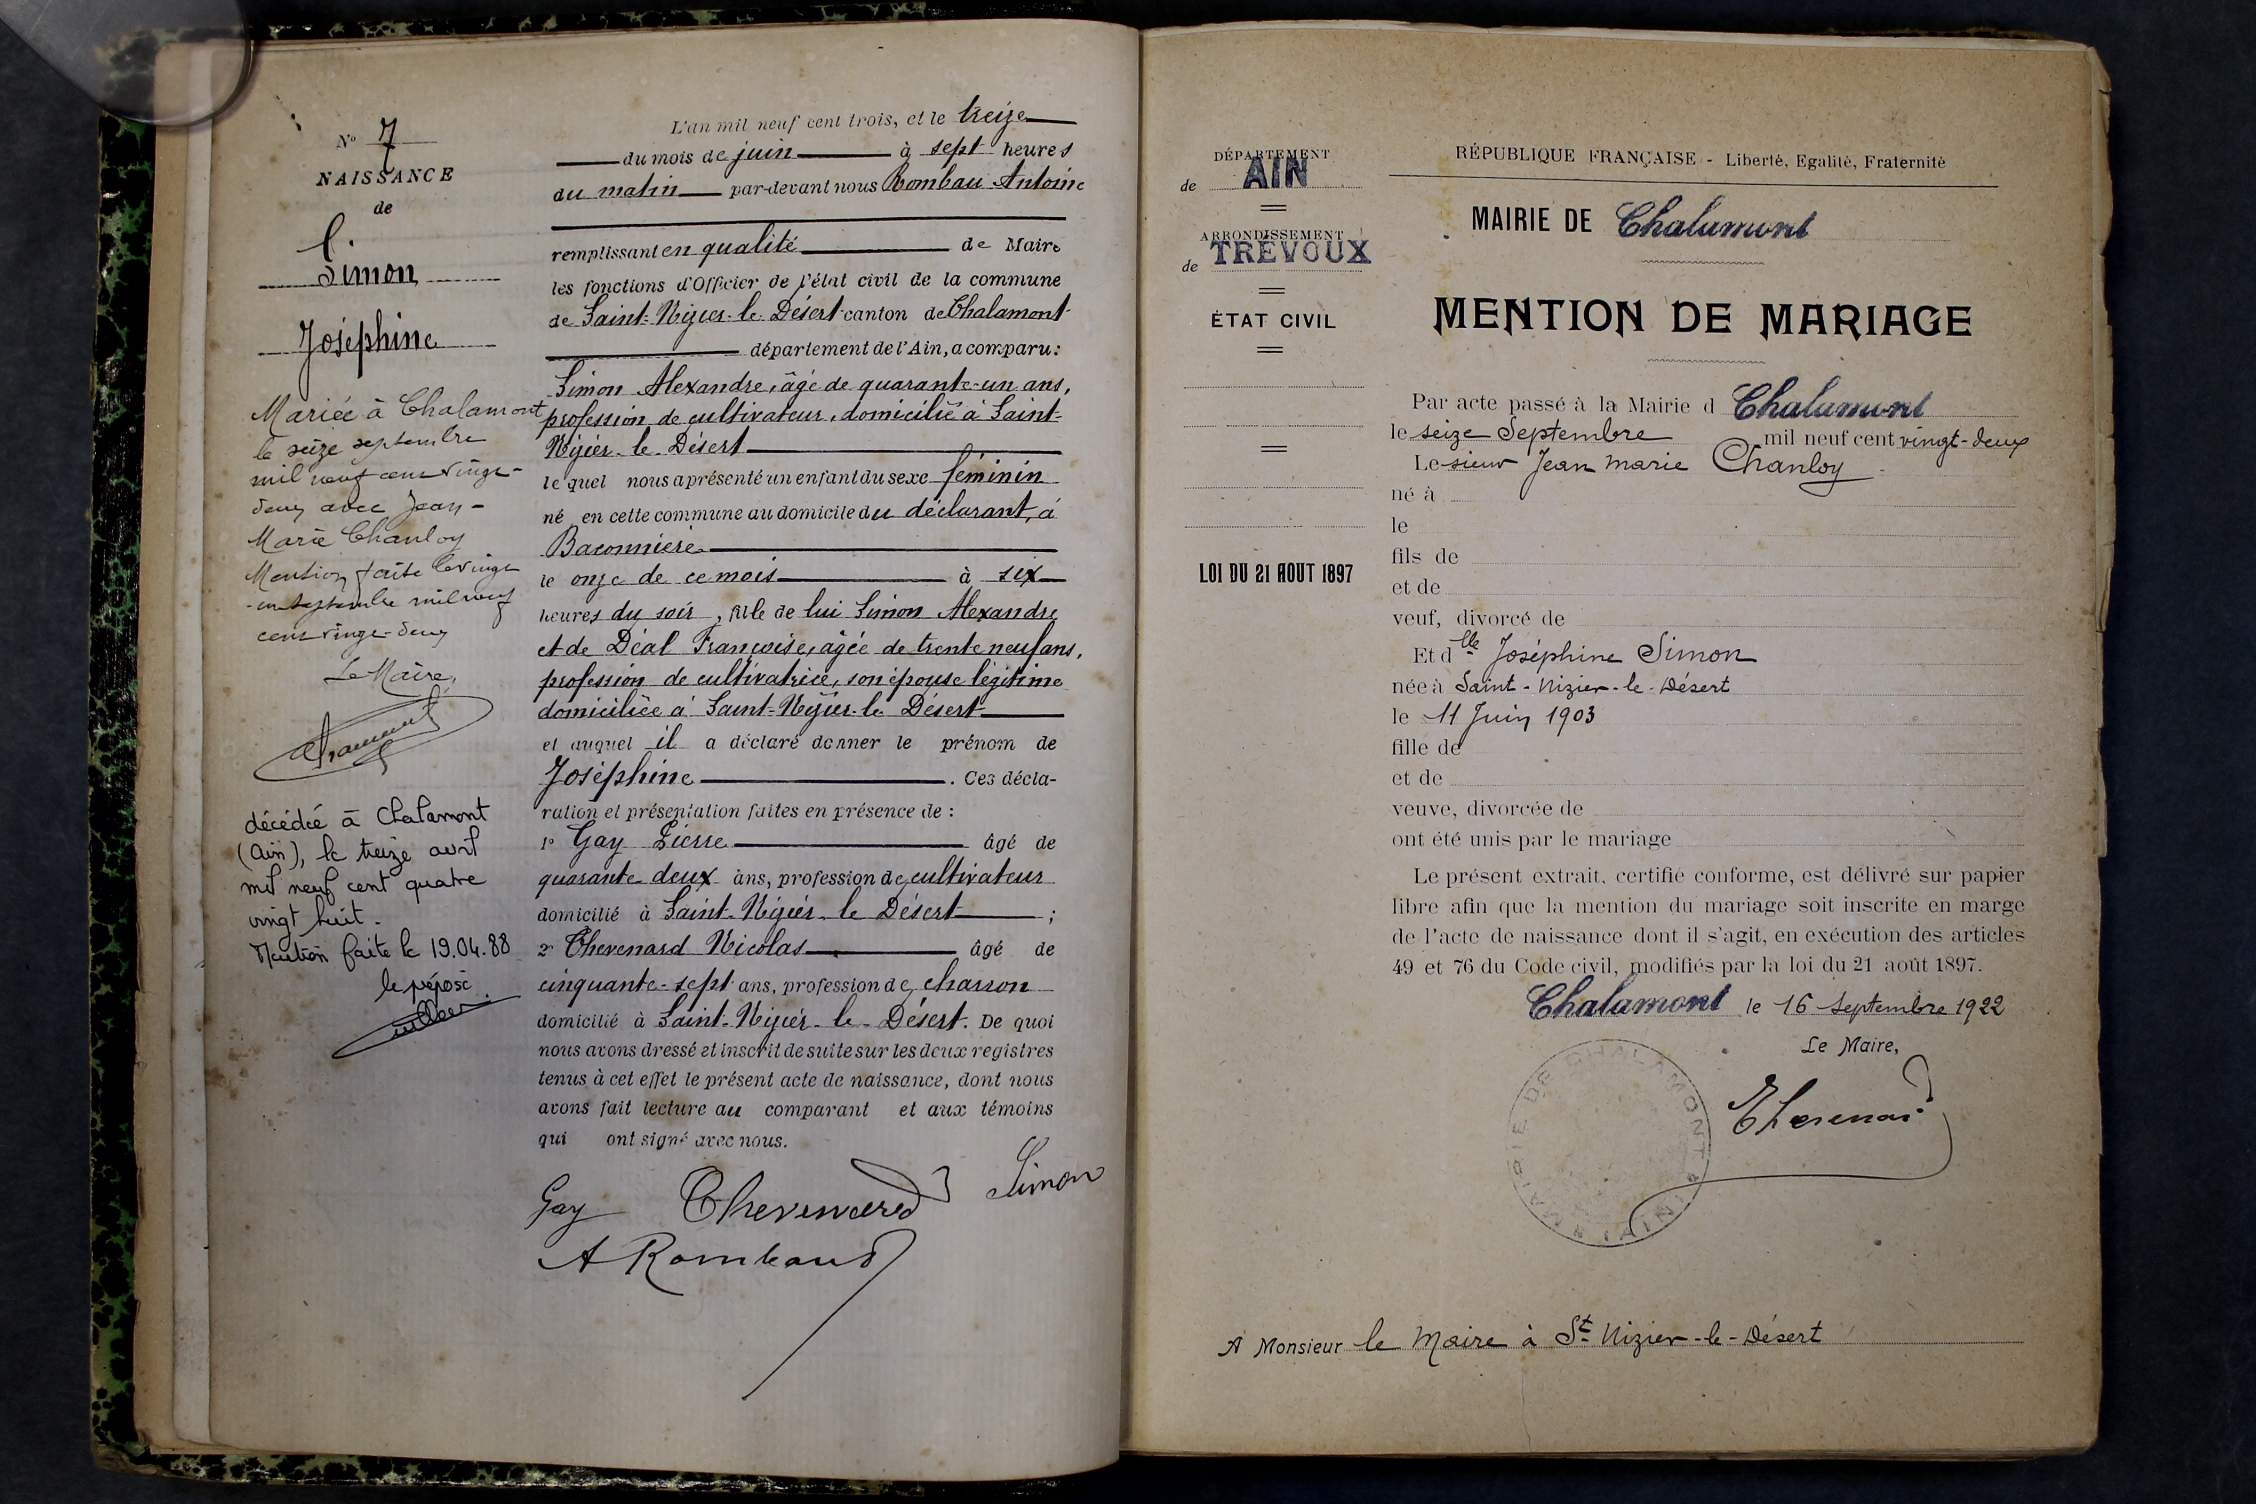 N° 7
NAISSANCE
de
Simon
Joséphine
Mariée à Chalamont
le seize septembre
mil neuf cent vingt-
deux avec Jean-
Marie Chanloy
Mention faite le vingt
-un septembre mil neuf
cent vingt-deux
Le Maire,
décédée à Chalamont
(Ain), le treize avril
mil neuf cent quatre
vingt huit.
Mention faite le 19.04.88
le préposé
L'an mil neuf cent trois, et le treize
du mois de juin à sept heures
du matin par-devant nous Rombau Antoine
remplissant en qualité de Maire
les fonctions d'Officier de l'état civil de la commune
de Saint-Nizier-le-Désert canton de Chalamont
département de l'Ain, a comparu:
Simon Alexandre, âgé de quarante-un ans,
profession de cultivateur, domicilié à Saint-
Nizier-le-Désert
lequel nous a présenté un enfant du sexe féminin
né en cette commune au domicile du déclarant, à
Baconnière
le onze de ce mois à six
heures du soir, fille de lui Simon Alexandre
et de Déal Françoise, agée de trente neuf ans,
profession de cultivatrice, son épouse légitime
domiciliée à Saint-Nizier-le Désert
et auquel il a déclaré donner le prénom de
Joséphine. Ces décla-
ration et présentation faites en présence de :
1° Gay Pierre âgé de
quarante deux ans, profession de cultivateur
domicilié à Saint-Nizier-le Désert ;
2° Thevenard Nicolas âgé de
cinquante-sept ans, profession de charron
domicilié à Saint-Nizier-le-Désert. De quoi
nous avons dressé et inscrit de suite sur les deux registres
tenus à cet effet le présent acte de naissance, dont nous
avons fait lecture au comparant et aux témoins
qui ont signé avec nous.
Gay Thevenard Simon
A Rombaud
DÉPARTEMENT
de AIN
ARRONDISSEMENT
de TRÉVOUX
ÉTAT CIVIL
LOI DU 21 AOUT 1897
RÉPUBLIQUE FRANÇAISE - Liberté, Egalité, Fraternité
MAIRIE DE Chalamont
MENTION DE MARIAGE
Par acte passé à la Mairie d Chalamont
le seize Septembre mil neuf cent vingt-deux
Le sieur Jean Marie Chanloy
né à
le
fils de
et de
veuf, divorcé de
Et dlle Joséphine Simon
née à Saint-Nizier-le-Désert
le 11 Juin 1903
fille de
et de
veuve, divorcée de
ont été unis par le mariage
Le présent extrait, certifié conforme, est délivré sur papier
libre afin que la mention du mariage soit inscrite en marge
de l'acte de naissance dont il s'agit, en exécution des articles
49 et 76 du Code civil, modifiés par la loi du 21 août 1897.
Chalamont le 16 Septembre 1922
Le Maire,
MAIRIE DE CHALAMONT (AIN)
Thevenard
A Monsieur le Maire à St Nizier-le-Désert